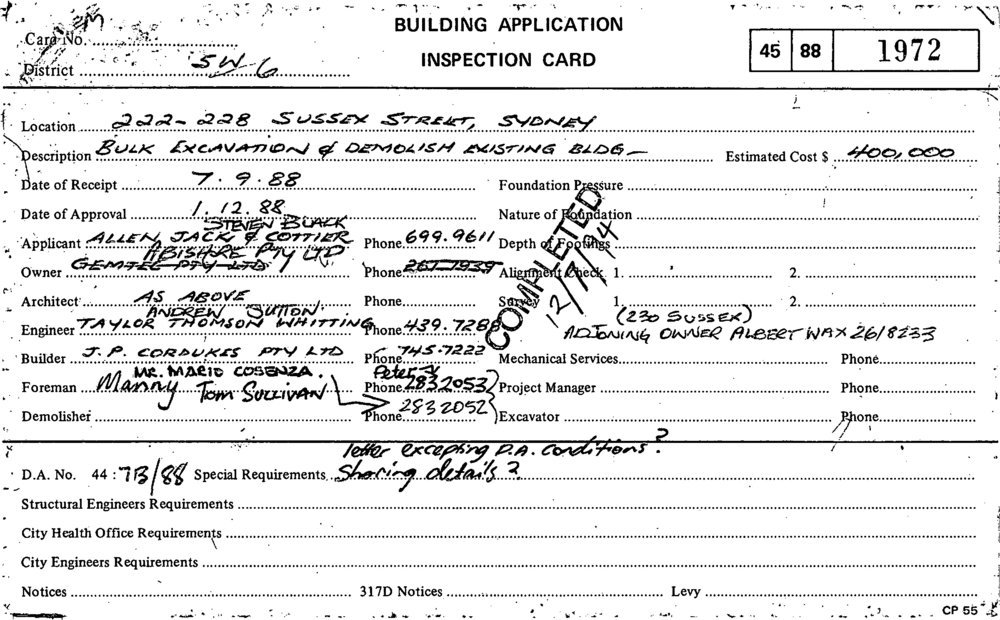 BUILDING APPLICATION
INSPECTION CARD
45 88 1972
Card No.
District SW 6
Location 222-228 SUSSEX STREET, SYDNEY
Description BULK EXCAVATION & DEMOLISH EXISTING BLDG - Estimated Cost $ 400,000
Date of Receipt 7.9.88 Foundation Pressure
Date of Approval 1.12.88 Nature of Foundation
STEVEN BLACK
Applicant ALLEN, JACK & COTTIER Phone 699.9611 Depth of Footings
PTY LTD
Owner GEMTEL PTY LTD Phone 267 7939 Alignment Check 1. 2.
COMPLETED
12/7/94
Architect AS ABOVE Phone Survey 1. 2.
ANDREW SUTTON. (230 SUSSEX)
Engineer TAYLOR THOMSON WHITTING Phone 439.7288 ADJONING OWNER ALBERT WAX 261 8233
Builder J.P. CORDUKES PTY LTD Phone 745-7222 Mechanical Services Phone
MR. MARIO COSENZA. Peter
Foreman Manny Tom SULLIVAN Phone 2832053 Project Manager Phone
2832052
Demolisher Phone Excavator Phone
letter excepting D.A. Conditions?
D.A. No. 44: 713/88 Special Requirements Shoring details?
Structural Engineers Requirements
City Health Office Requirements
City Engineers Requirements
Notices 317D Notices Levy
CP 55